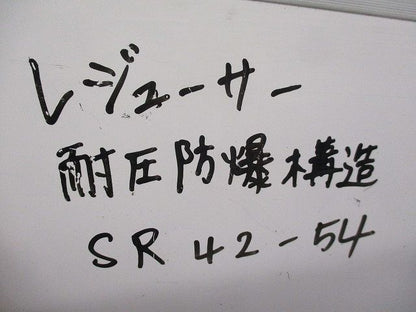 レジューサー
耐圧防爆構造
SR 42-54